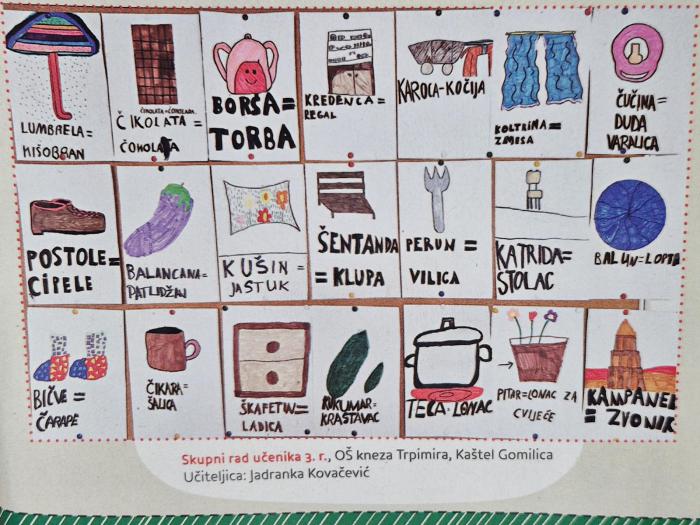 LUMBRELA=
KIŠOBRAN
ČIKOLATA=ČOKOLADA
ČIKOLATA =
ČOKOLATA
BORŠA=
TORBA
KREDENCA=
REGAL
KAROCA-KOČIJA
KOLTRINA=
ZAVJESA
ČUČINA=
DUDA
VARALICA
POSTOLE=
CIPELE
BALANCANA=
PATLIDŽAN
KUŠIN=
JASTUK
ŠENTANDA
= KLUPA
PERUN =
VILICA
KATRIDA=
STOLAC
BALUN=LOPTA
BIČVE =
ČARAPE
ČIKARA=
ŠALICA
ŠKAFETIN=
LADICA
KUKUMAR=
KRASTAVAC
TEĆA-LONAC
PITAR=LONAC ZA
CVIJEĆE
KAMPANEL
= ZVONIK
Skupni rad učenika 3. r., OŠ kneza Trpimira, Kaštel Gomilica
Učiteljica: Jadranka Kovačević